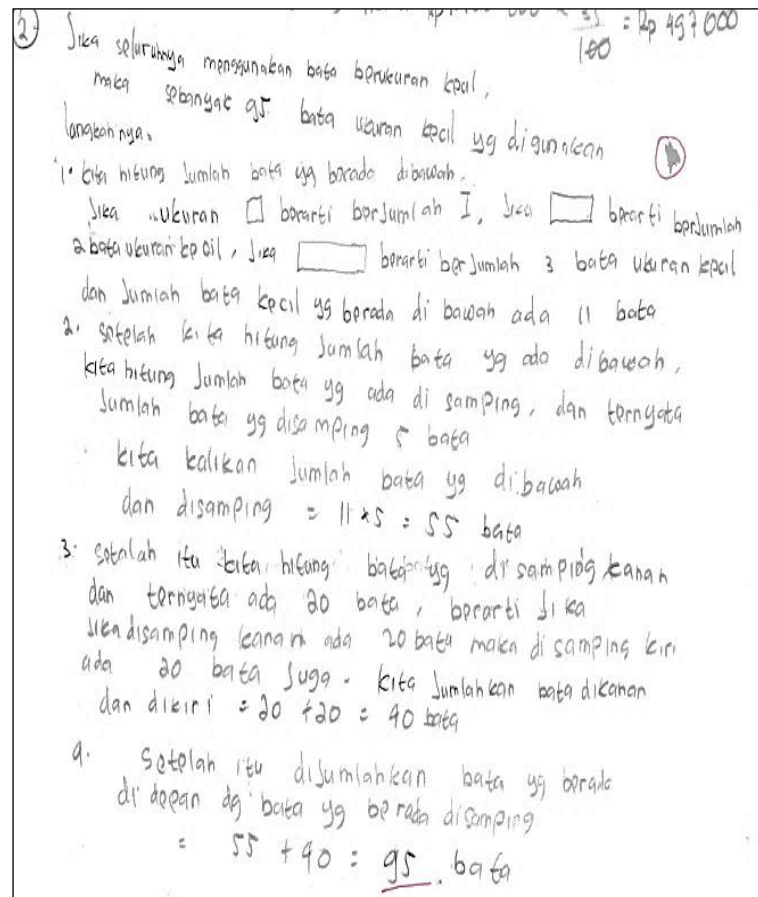 = Rp 497 000
100
2 Jika seluruhnya menggunakan bata berukuran kecil,
maka sebanyak 95 bata ukuran kecil yg digunakan
langkahnya.
1. kita hitung Jumlah bata yg berada dibawah.
Jika ukuran berarti berjumlah I, Jika berarti berjumlah
2 bata ukuran kecil, Jika berarti berjumlah 3 bata ukuran kecil
dan Jumlah bata kecil yg berada di bawah ada 11 bata
2. setelah kita hitung Jumlah bata yg ada dibawah,
kita hitung Jumlah bata yg ada di samping, dan ternyata
Jumlah bata yg disamping 5 bata
kita kalikan Jumlah bata yg dibawah
dan disamping = 11 x 5 = 55 bata
3. setalah itu kita hitung bata yg di samping kanan
dan ternyata ada 20 bata, berarti Jika
Jika disamping kanan ada 20 bata maka di samping kiri
ada 20 bata Juga. kita Jumlahkan bata dikanan
dan dikiri = 20 + 20 = 40 bata
4. Setelah itu diJumlahkan bata yg berada
di depan dg bata yg berada disamping
= 55 + 40 = 95 bata